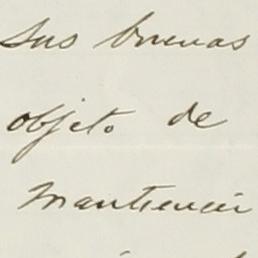 sus buenas
objeto de
mantienen